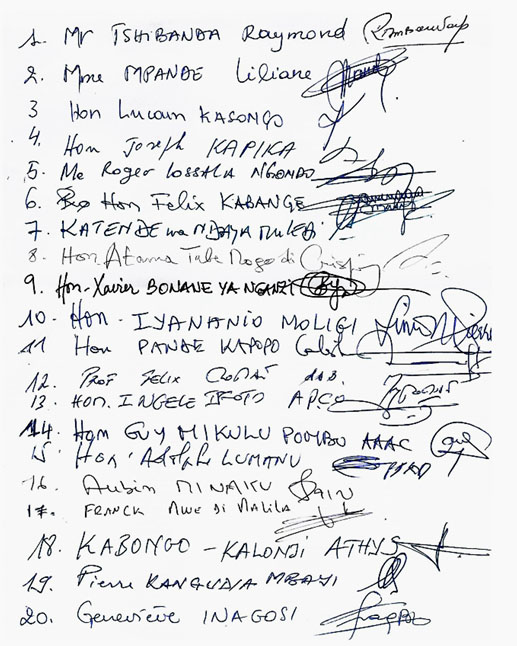 1. Mr TSHIBANDA Raymond
2. Mme MPANDE Liliane
3 Hon Lucain KASONGO
4. Hon Joseph KAPIKA
5. Me Roger LOSSALA NGONDO
6. Hon Felix KABANGE
7. KATENDE wa NDAYA MULEDI
8. Hon. Atama Tabe Mogodi Crispin
9. Hon. Xavier BONANE YA NGANZI
10. Hon - IYANANIO MOLIGI
11 Hon PANDE KAPOPO
12. Prof FELIX
13. HON. INGELE IFOTO APCO
14. Hon GUY MIKULU POMBO AAAC
15 Hon. Adolphe LUMANU
16 Aubin MINAKU
17. FRANCK MWE DI MALILA
18. KABONGO - KALONJI ATHYS
19. Pierre KANGUDIA MBAYI
20. Geneviève INAGOSI